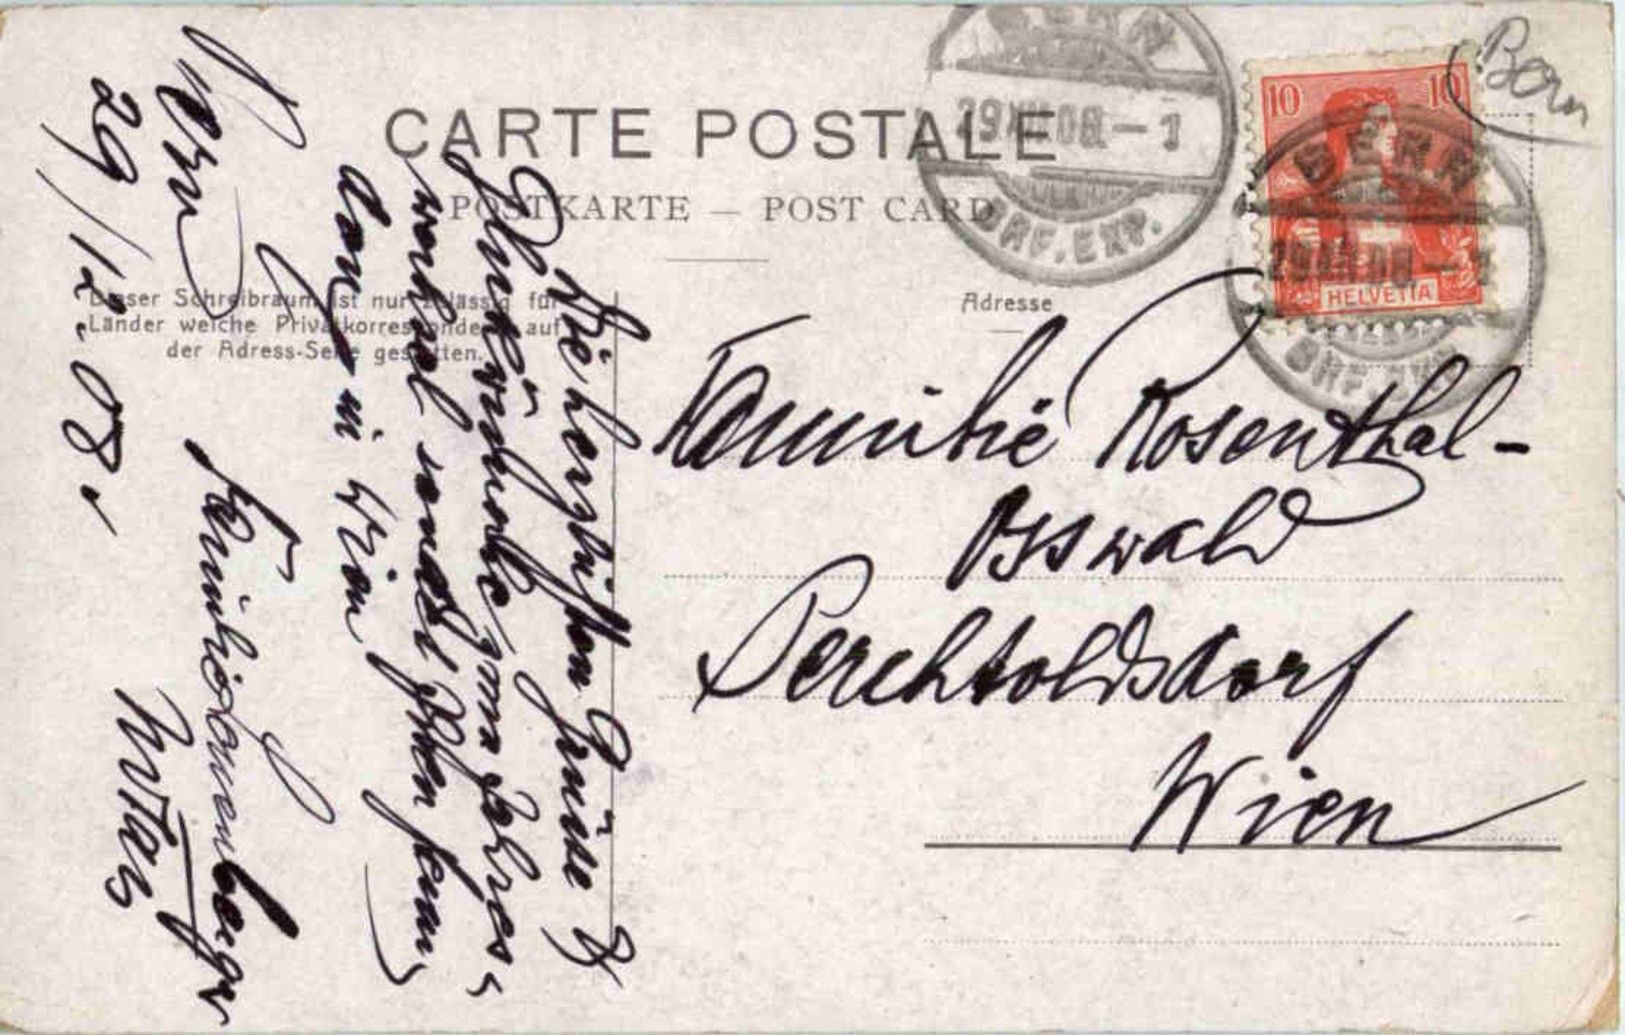 CARTE POSTALE
POSTKARTE — POST CARD
Dieser Schreibraum ist nur zulässig für
Länder welche Privatkorrespondenz auf
der Adress-Seite gestatten.
Adresse
BERN
29 XII 08 — 1
BRF. EXP.
10 10
HELVETIA
BERN
29 XII 08 — 1
BRF. EXP.
Bern
Familie Rosenthal-
Osswald
Perchtoldsdorf
Wien
Bern
29/12.08.
Die herzlichsten Grüsse &
Glückwünsche zum Jahres-
wechsel sendet Ihnen
in Wien
Familie